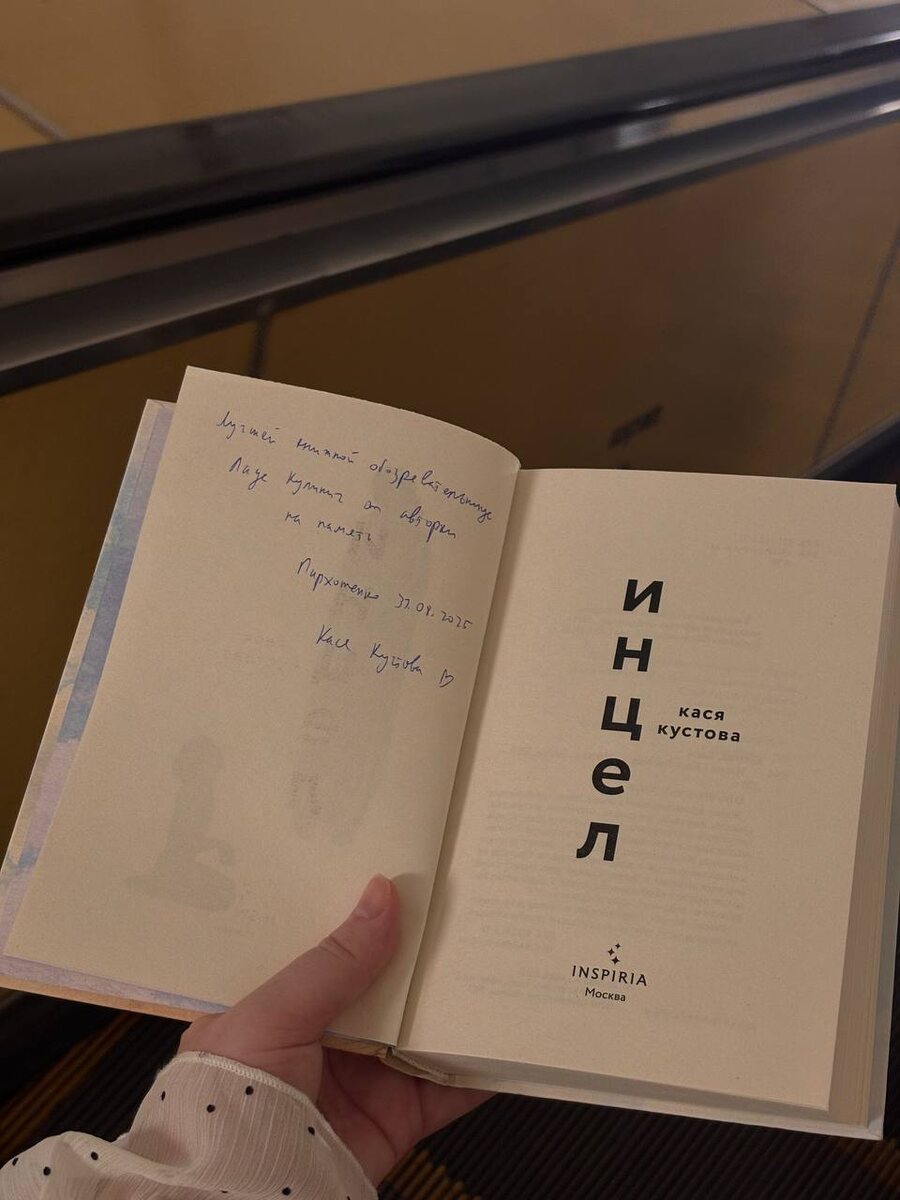 Лучшей книжной обозревательнице
Ладе Кулинич от авторки
на память
Пархоменко 31.08.2025
Кася Кустова
и
н
ц
е
л
кася
кустова
INSPIRIA
Москва